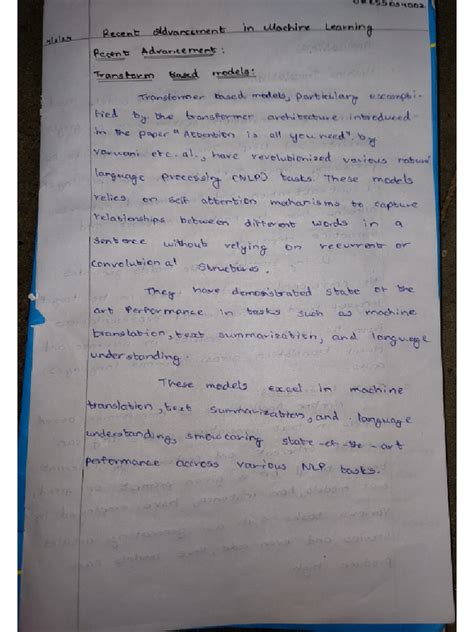 Recent Advancement in Machine Learning
Recent Advancement:
Transform based models:
Transformer based models, particulary
by the transformer architecture introduced
in the paper "Attention is all you need" by
etc. al., have revolutionized various
language processing (NLP) tasks. These models
relies on self attention to capture
relationships between different words in a
sentence without relying on recurrent or
convolutional structures.
They have demonstrated state of the
art performance in tasks such as machine
translation, text summarization, and language
understanding.
These models excel in machine
translation, text summarization, and language
understanding, state-of-the-art
performance accross various NLP tasks.